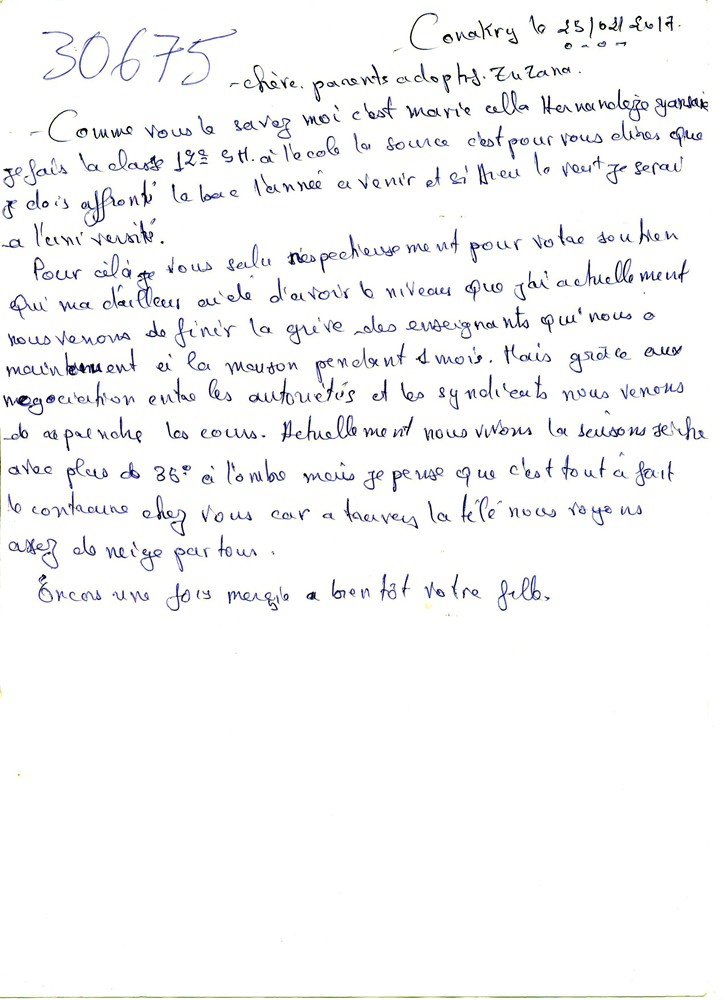 Conakry le 25/02/2017.
30675
- chère. parents adoptifs. Zuzana.
- Comme vous le savez moi c'est marie cella Hernandeze
je fais la classe 12e SH. à l'ecole la source c'est pour vous dires que
je dois affronté le bac l'année a venir et si Dieu le veut je serai
a l'université.
Pour cèlà je vous salu respectieusement pour votre soutien
qui ma d'ailleur aidé d'avoir le niveau que j'ai actuellement
nous venons de finir la grève des enseignants qui nous a
maintenment à la maison pendant 1 mois. Mais grâce aux
negociation entre les autorietés et les syndicats nous venons
de reprendre les cours. Actuellement nous vivons la saisons sèche
avec plus de 35° à l'ombre mais je pense que c'est tout à fait
le contraire chez vous car a travers la télé nous voyons
assez de neige partous.
Encore une fois merci a bientôt votre fille.